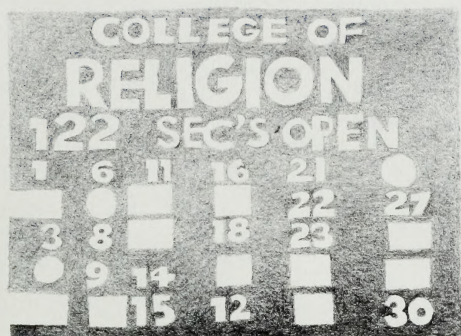 COLLEGE OF
RELIGION
122 SEC'S OPEN
1 6 11 16 21
22 27
3 8 18 23
9 14
15 12 30